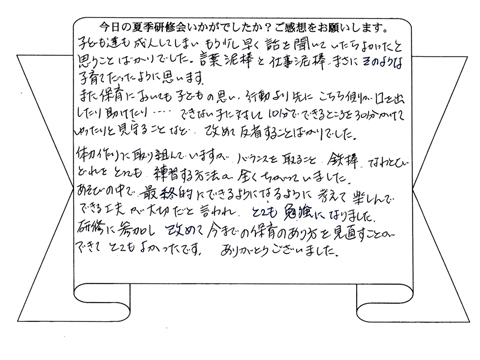 今日の夏季研修会いかがでしたか？ご感想をお願いします。
子ども達も成人してしまい もう少し早く話を聞いていたらよかったと
思うことばかりでした。言葉泥棒と仕事泥棒、まさにそのような
子育てだったように思います。
また保育においても子どもの思い、行動より先に こちら側が 口を出
したり助けたり‥‥ できない子に対して 10分でできるところを30分かけて
ゆったりと見守ることなど、改めて反省することばかりでした。
体力作りに取り組んでいますが バランスを取ること、鉄棒、なわとび
どれをとっても 練習する方法が 全くちがっていました。
あそびの中で、最終的にできるようになるように 考えて 楽しんで
できる工夫が大切だと言われ、とても 勉強になりました。
研修に参加し 改めて今までの保育のあり方を見直すことが
できて とてもよかったです。 ありがとうございました。